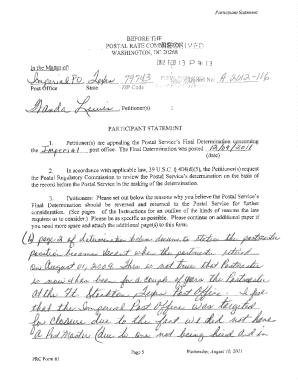 Participant Statement
BEFORE THE
POSTAL RATE COMMISSION
RECEIVED
WASHINGTON, DC 20268
2012 FEB 13 P 9:13
In the Matter of:
Imperial PO, Texas 79743 A 2012-116
Post Office State ZIP Code
Wanda Lewis Petitioner(s)
PARTICIPANT STATEMENT
1. Petitioner(s) are appealing the Postal Service's Final Determination concerning
the Imperial post office. The Final Determination was posted
(date)
2. In accordance with applicable law, 39 U.S.C. § 404(d)(5), the Petitioner(s) request
the Postal Regulatory Commission to review the Postal Service's determination on the basis of
the record before the Postal Service in the making of the determination.
3. Petitioners: Please set out below the reasons why you believe the Postal Service's Final
Determination should be reversed and returned to the Postal Service for further
consideration. (See pages of the Instructions for an outline of the kinds of reasons the law
requires us to consider.) Please be as specific as possible. Please continue on additional paper if
you need more space and attach the additional page(s) to this form.
(1) page 2 of determination states the postmaster
position became vacant when the postmaster retired
on August 01, 2009. This is not true that Postmaster
is now been for a couple of years the Postmaster
at the Ft. Stockton Texas Post Office. I feel
that the Imperial Post Office was targeted
for closure due to the fact we did not have
a Post Master (due to one not being hired and in
Page 5
Wednesday, August 10, 2011
PRC Form 61